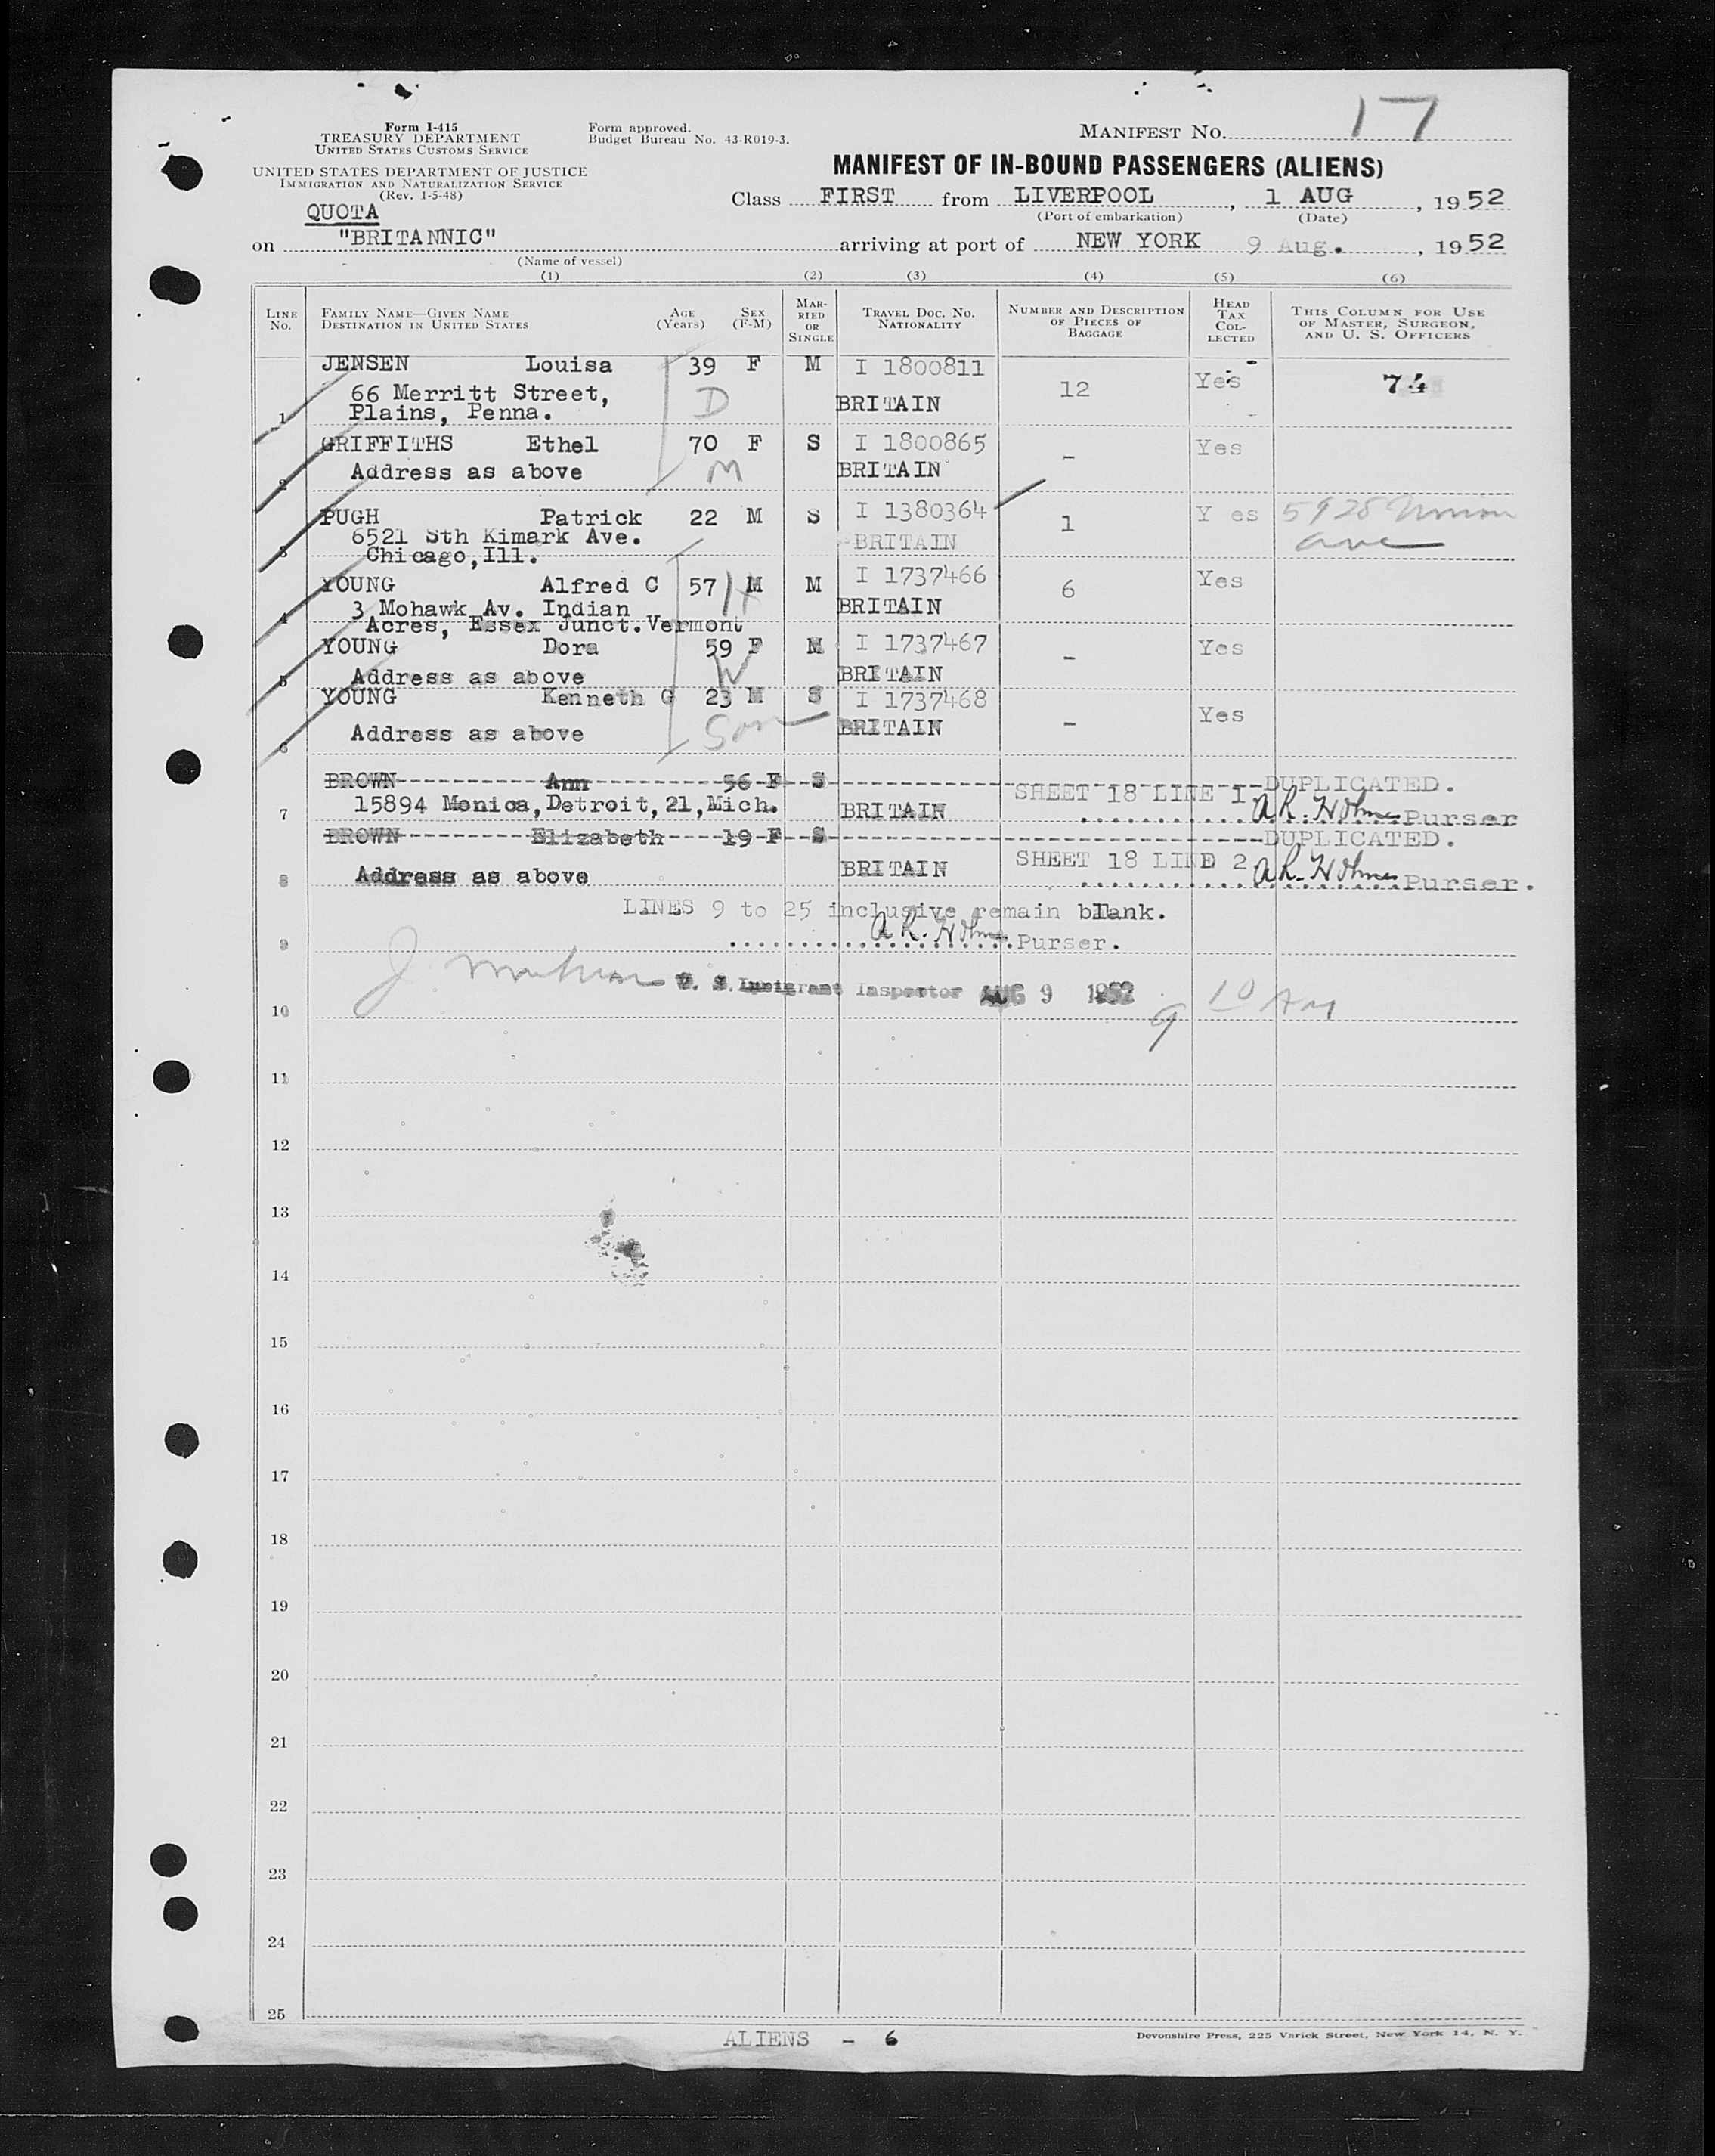 Form I-415
TREASURY DEPARTMENT
UNITED STATES CUSTOMS SERVICE
UNITED STATES DEPARTMENT OF JUSTICE
IMMIGRATION AND NATURALIZATION SERVICE
(Rev. 1-5-48)
Form approved.
Budget Bureau No. 43-R019-3.
MANIFEST No. 17
MANIFEST OF IN-BOUND PASSENGERS (ALIENS)
Class FIRST from LIVERPOOL, 1 AUG, 1952
(Port of embarkation) (Date)
QUOTA
on "BRITANNIC" arriving at port of NEW YORK 9 Aug., 1952
(Name of vessel)
(1) (2) (3) (4) (5) (6)
LINE No.
FAMILY NAME—GIVEN NAME
DESTINATION IN UNITED STATES
AGE (Years)
SEX (F-M)
MARRIED OR SINGLE
TRAVEL DOC. NO.
NATIONALITY
NUMBER AND DESCRIPTION OF PIECES OF BAGGAGE
HEAD TAX COLLECTED
THIS COLUMN FOR USE OF MASTER, SURGEON, AND U. S. OFFICERS
JENSEN Louisa 39 F M I 1800811 12 Yes 74
66 Merritt Street, D BRITAIN
1 Plains, Penna.
GRIFFITHS Ethel 70 F S I 1800865 - Yes
2 Address as above M BRITAIN
PUGH Patrick 22 M S I 1380364 1 Y es 5928 Union
6521 Sth Kimark Ave. BRITAIN ave
3 Chicago,Ill.
YOUNG Alfred C 57 H M M I 1737466 6 Yes
3 Mohawk Av. Indian BRITAIN
4 Acres, Essex Junct.Vermont
YOUNG Dora 59 F M I 1737467 - Yes
5 Address as above W BRITAIN
YOUNG Kenneth G 23 M S I 1737468 - Yes
6 Address as above Son BRITAIN
BROWN Ann 56 F S DUPLICATED.
7 15894 Monica,Detroit,21,Mich. BRITAIN SHEET 18 LINE I A.R. Holmes Purser
BROWN Elizabeth 19 F S DUPLICATED.
8 Address as above BRITAIN SHEET 18 LINE 2 A.R. Holmes Purser.
LINES 9 to 25 inclusive remain blank.
9 A.R. Holmes Purser.
10 J. U. S. Immigrant Inspector AUG 9 1952 9 10 Am
11
12
13
14
15
16
17
18
19
20
21
22
23
24
25
ALIENS - 6
Devonshire Press, 225 Varick Street, New York 14, N. Y.